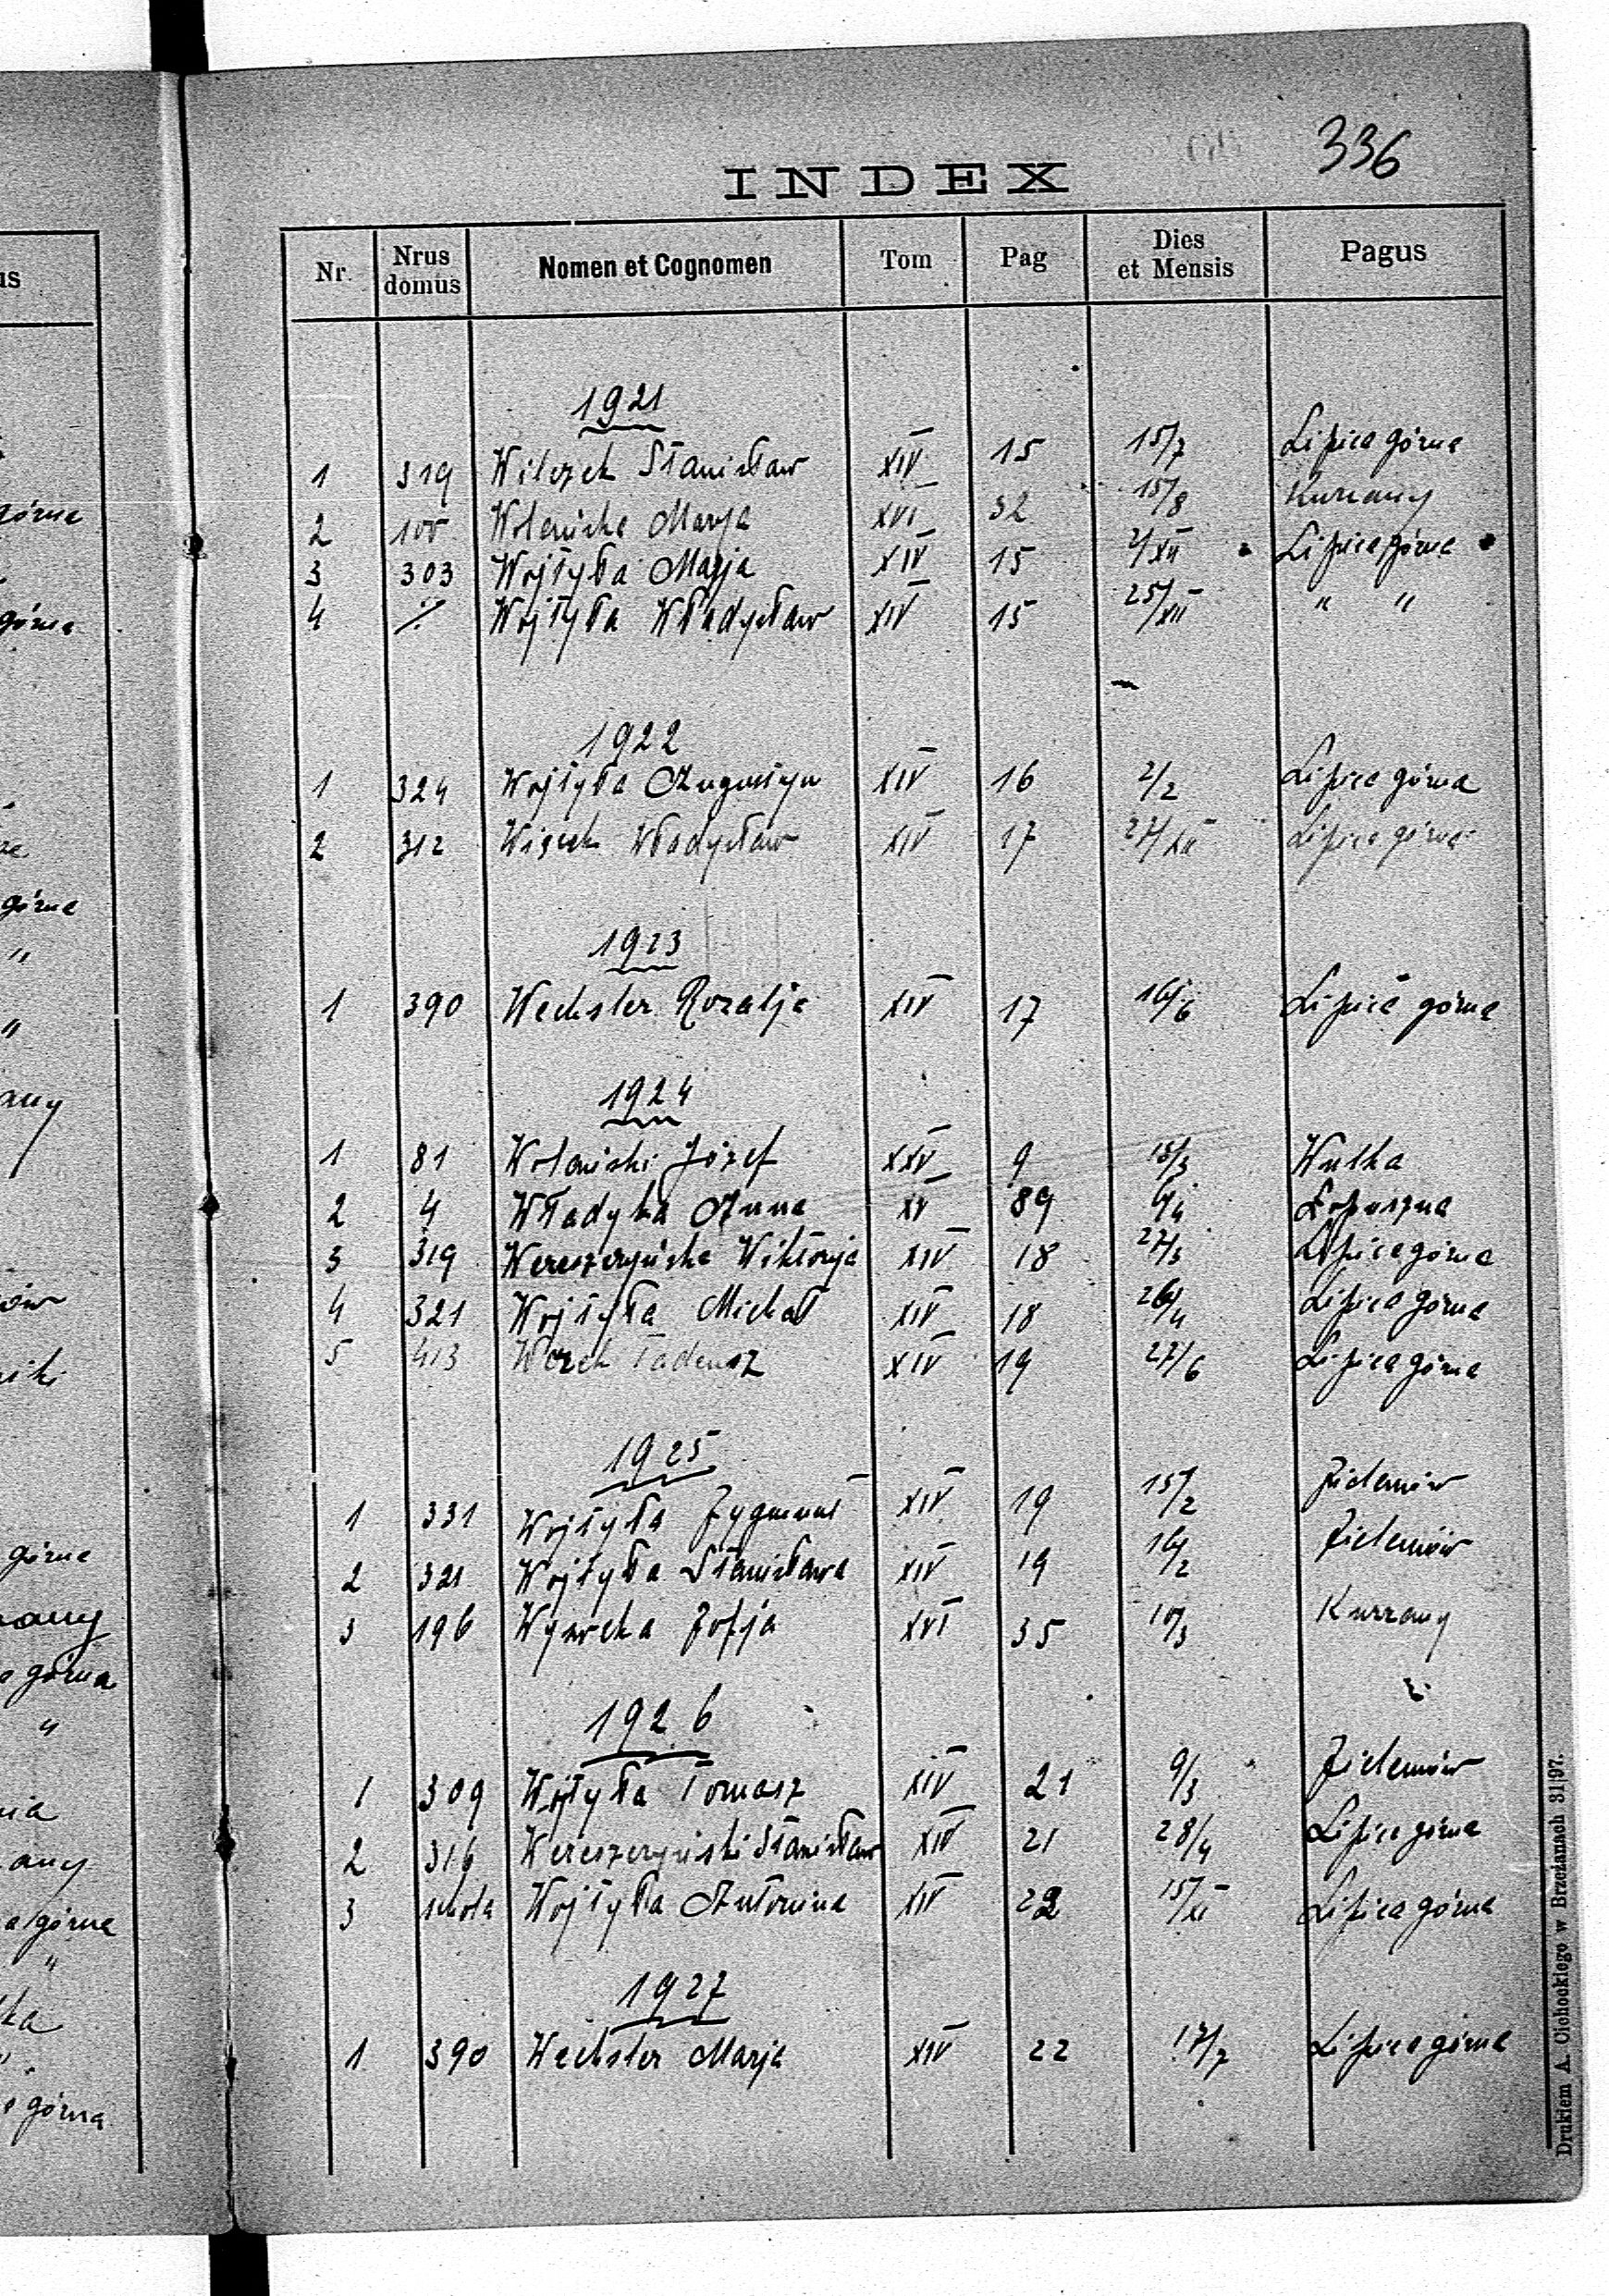 336
INDEX
Nr. Nrus domus Nomen et Cognomen Tom Pag Dies et Mensis Pagus
1921
1 319 Wilczek Stanisław XIV 15 15/7 Lipica górna
2 100 Wolańska Marja XVI 32 15/8 Kurzany
3 303 Wojtyła Marja XIV 15 2/XII Lipica górna
4 ./. Wojtyła Władysław XIV 15 25/XII " "
1922
1 324 Wojtyła Augustyn XIV 16 2/2 Lipica górna
2 312 Władysław XIV 17 27/XII Lipica górna
1923
1 390 Wechsler Rozalja XIV 17 16/6 Lipica górna
1924
1 81 Wolański Józef XXV 9 15/3 Wulka
2 4 Władyka Anna XV 89 6/4 Łopuszna
3 319 Wereszczyńska Wiktorja XIV 18 27/3 Lipica górna
4 321 Wojtyła Michał XIV 18 26/4 Lipica górna
5 413 Tadeusz XIV 19 27/6 Lipica górna
1925
1 331 Wojtyła Zygmunt XIV 19 15/2 Zielenów
2 321 Wojtyła Stanisława XIV 19 16/2 Zielenów
3 196 Zofja XVI 35 10/3 Kurzany
1926
1 309 Wojtyła Tomasz XIV 21 9/3 Zielenów
2 316 Wereszczyński Stanisław XIV 21 28/4 Lipica górna
3 szkoła Wojtyła Antonina XIV 22 15/XI Lipica górna
1927
1 390 Wechsler Marja XIV 22 17/7 Lipica górna
Drukiem A. Cichockiego w Brzeżanach 31|97.